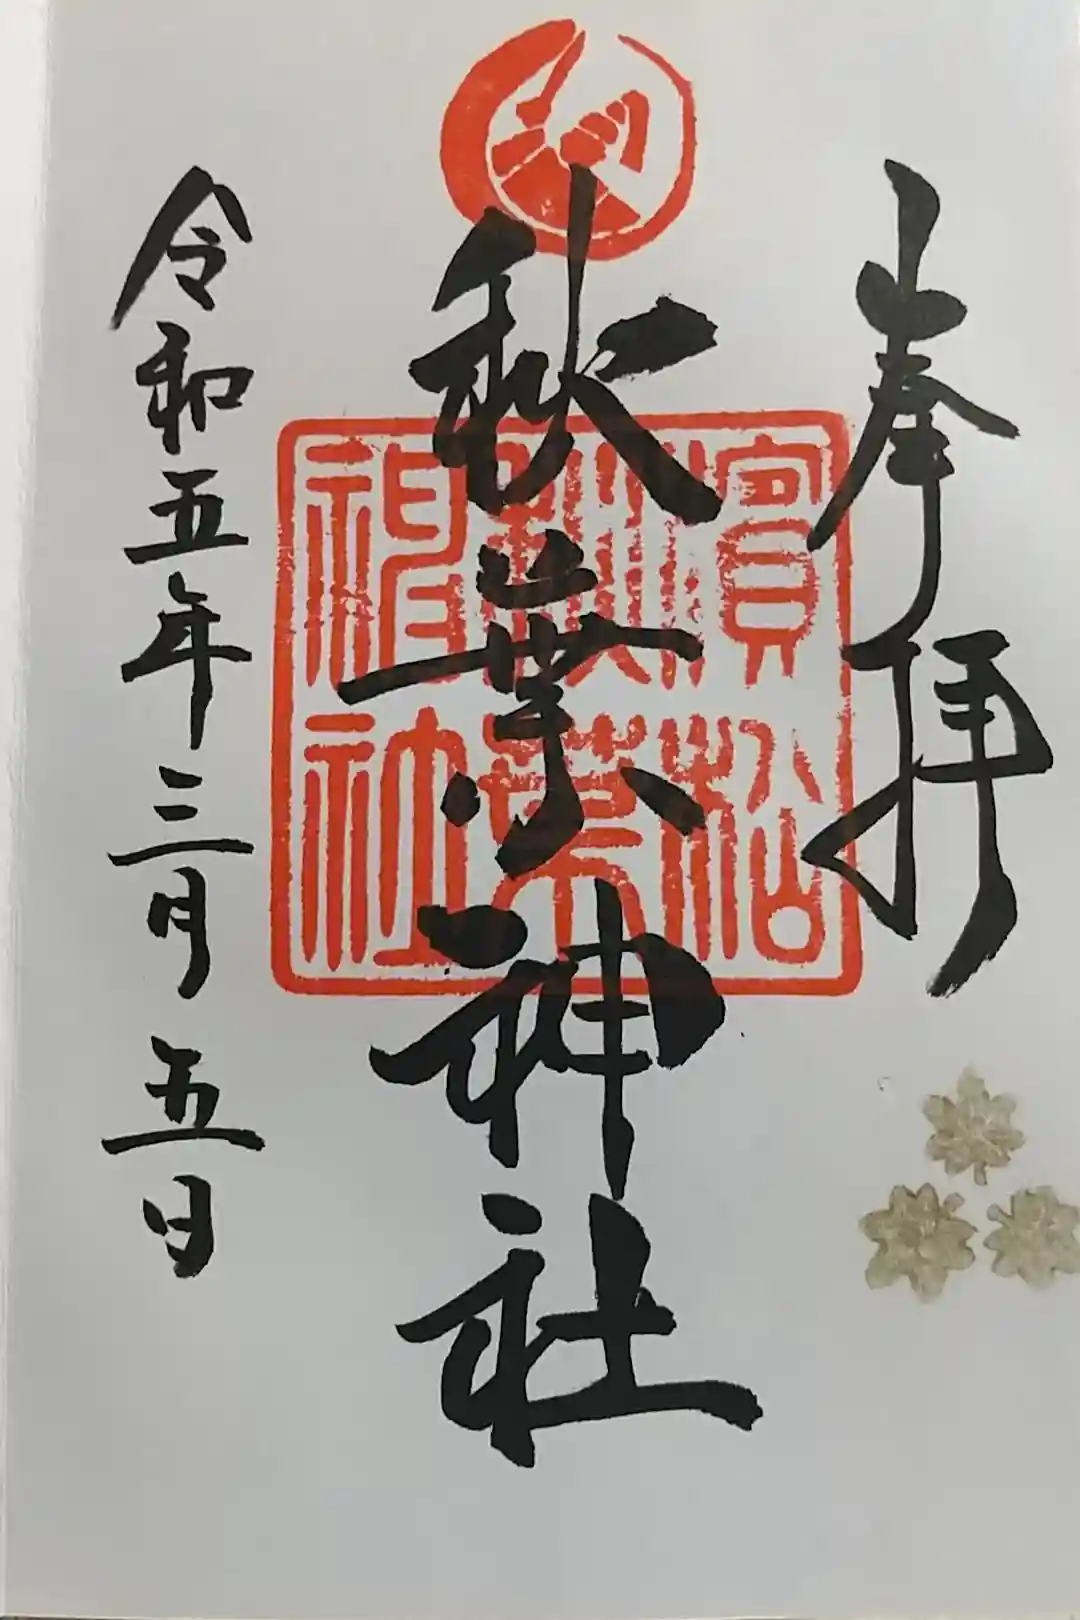 奉拝
秋葉神社
濱松
秋葉
祖社
令和五年三月五日